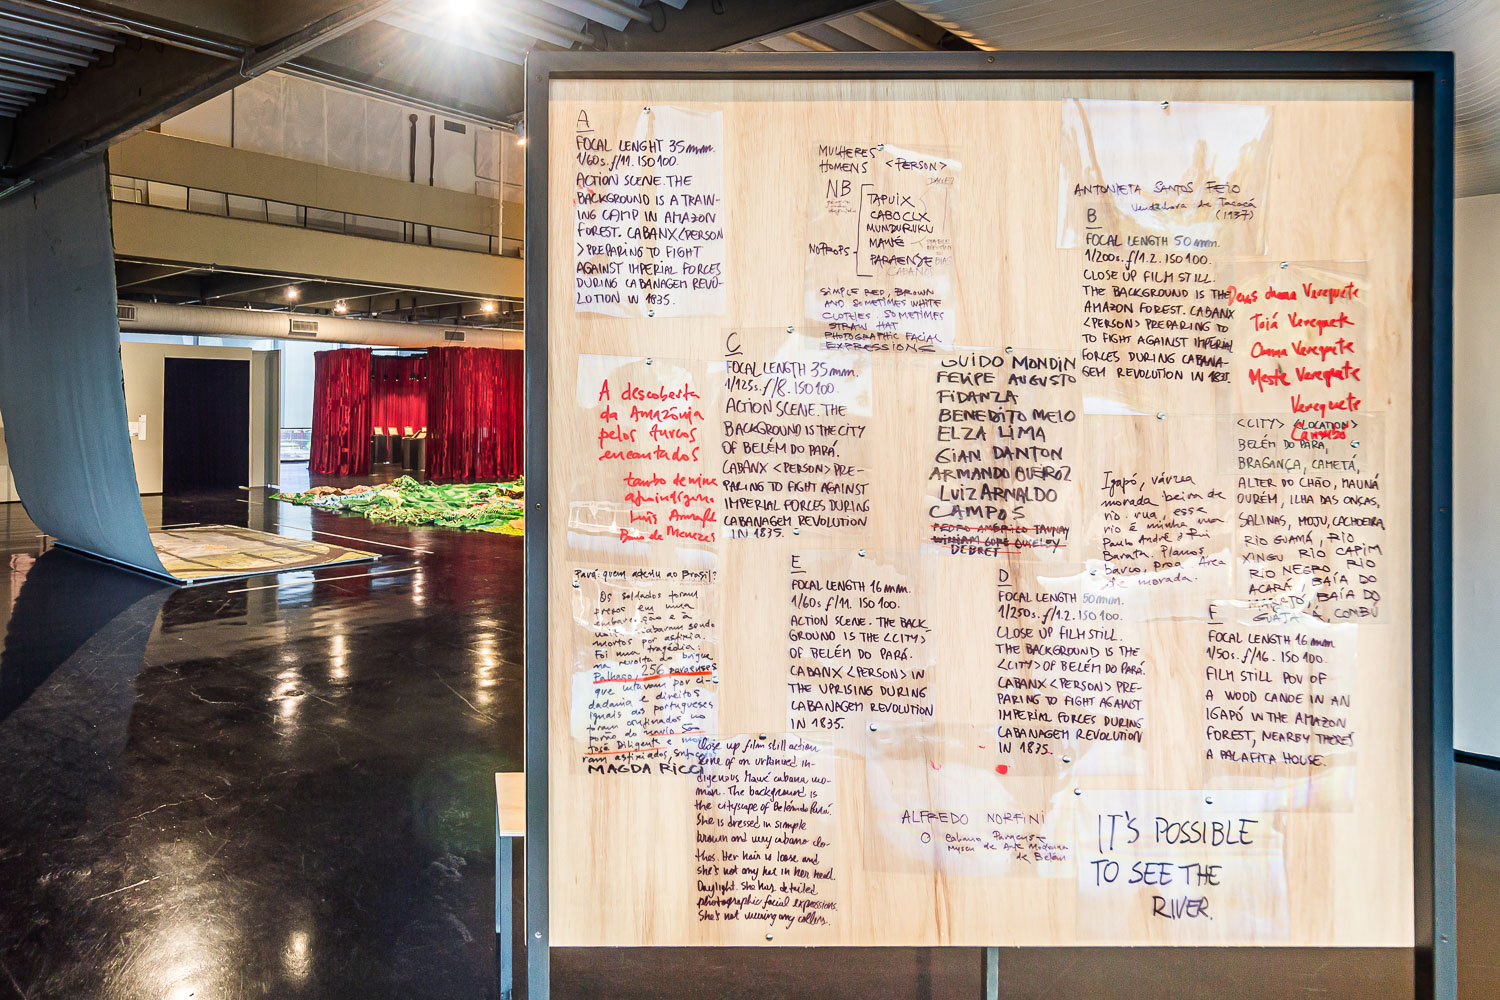 A
FOCAL LENGHT 35mm.
1/60s. f/11. ISO 100.
ACTION SCENE. THE
BACKGROUND IS A TRAIN-
ING CAMP IN AMAZON
FOREST. CABANX <PERSON
> PREPARING TO FIGHT
AGAINST IMPERIAL FORCES
DURING CABANAGEM REVO-
LUTION IN 1835.
MULHERES
HOMENS <PERSON>
NB
TAPUIX
CABOCLX
MUNDURUKU
MAWÉ
PARAENSE
CABANO
NO PROPS
SIMPLE RED, BROWN
AND SOMETIMES WHITE
CLOTHES. SOMETIMES
STRAW HAT
PHOTOGRAPHIC FACIAL
EXPRESSIONS
ANTONIETA SANTOS FEIO
Vendedora de Tacacá
(1937)
B
FOCAL LENGTH 50mm.
1/200s. f/1.2. ISO 100.
CLOSE UP FILM STILL.
THE BACKGROUND IS THE
AMAZON FOREST. CABANX
<PERSON> PREPARING TO
TO FIGHT AGAINST IMPERIAL
FORCES DURING CABANA-
GEM REVOLUTION IN 1835.
Verequete
Toiá Verequete
Verequete
Verequete
Verequete
A descoberta
da Amazônia
pelos turcos
encantados
tambo de mina
Luis Arnaldo
C
FOCAL LENGTH 35mm.
1/125s. f/8. ISO 100.
ACTION SCENE. THE
BACKGROUND IS THE CITY
OF BELÉM DO PARÁ.
CABANX <PERSON> PRE-
PARING TO FIGHT AGAINST
IMPERIAL FORCES DURING
CABANAGEM REVOLUTION
IN 1835.
GUIDO MONDIN
FELIPE AUGUSTO
FIDANZA
BENEDITO MELO
ELZA LIMA
GIAN DANTON
ARMANDO QUEIROZ
LUIZ ARNALDO
CAMPOS
PEDRO AMÉRICO TAUNAY
WILLIAM GORE OUSELEY
DEBRET
Igapó, várzea
morada beira de
rio. rua, esse
rio é minha rua
Paulo André e Rui
Barata. Planos
barco, proa. Área
de morada.
<CITY> <LOCATION>
BELÉM DO PARÁ,
BRAGANÇA, CAMETÁ,
ALTER DO CHÃO, MAUNÁ
OURÉM, ILHA DAS ONÇAS,
SALINAS, MOJU, CACHOEIRA
RIO GUAMÁ, RIO
XINGU RIO CAPIM
RIO NEGRO, RIO
ACARÁ, BAÍA DO
BAÍA DO
GUAJARÁ, COMBÚ
Pará: quem aderiu ao Brasil?
Os soldados foram
presos em uma
embarcação e à
noite acabaram sendo
mortos por asfixia.
Foi uma tragédia:
na revolta do brigue
Palhaço, 256 paraenses
que lutavam por ci-
dadania e direitos
iguais aos portugueses
foram confinados no
porão do navio São
José Diligente e mor-
reram asfixiados,
MAGDA RICCI
E
FOCAL LENGTH 16mm.
1/60s f/11. ISO 100.
ACTION SCENE. THE BACK-
GROUND IS THE <CITY>
OF BELÉM DO PARÁ.
CABANX <PERSON> IN
THE UPRISING DURING
CABANAGEM REVOLUTION
IN 1835.
D
FOCAL LENGTH 50mm.
1/250s. f/1.2. ISO 100.
CLOSE UP FILM STILL.
THE BACKGROUND IS THE
<CITY> OF BELÉM DO PARÁ.
CABANX <PERSON> PRE-
PARING TO FIGHT AGAINST
IMPERIAL FORCES DURING
CABANAGEM REVOLUTION
IN 1835.
F
FOCAL LENGTH 16mm
1/50s. f/16. ISO 100.
FILM STILL POV OF
A WOOD CANOE IN AN
IGAPÓ IN THE AMAZON
FOREST, NEARBY THERE'S
A PALAFITA HOUSE.
Close up film still action
scene of an urbanized in-
digenous Mawé cabana wo-
man. The background is
the cityscape of Belém do Pará.
She is dressed in simple
brown and very cabano clo-
thes. Her hair is loose and
she's not any hat in her head.
Daylight. She has detailed
photographic facial expressions.
She's not wearing any collars.
ALFREDO NORFINI
O Cabano Paraense
Museu de Arte Moderna
de Belém
IT'S POSSIBLE
TO SEE THE
RIVER.